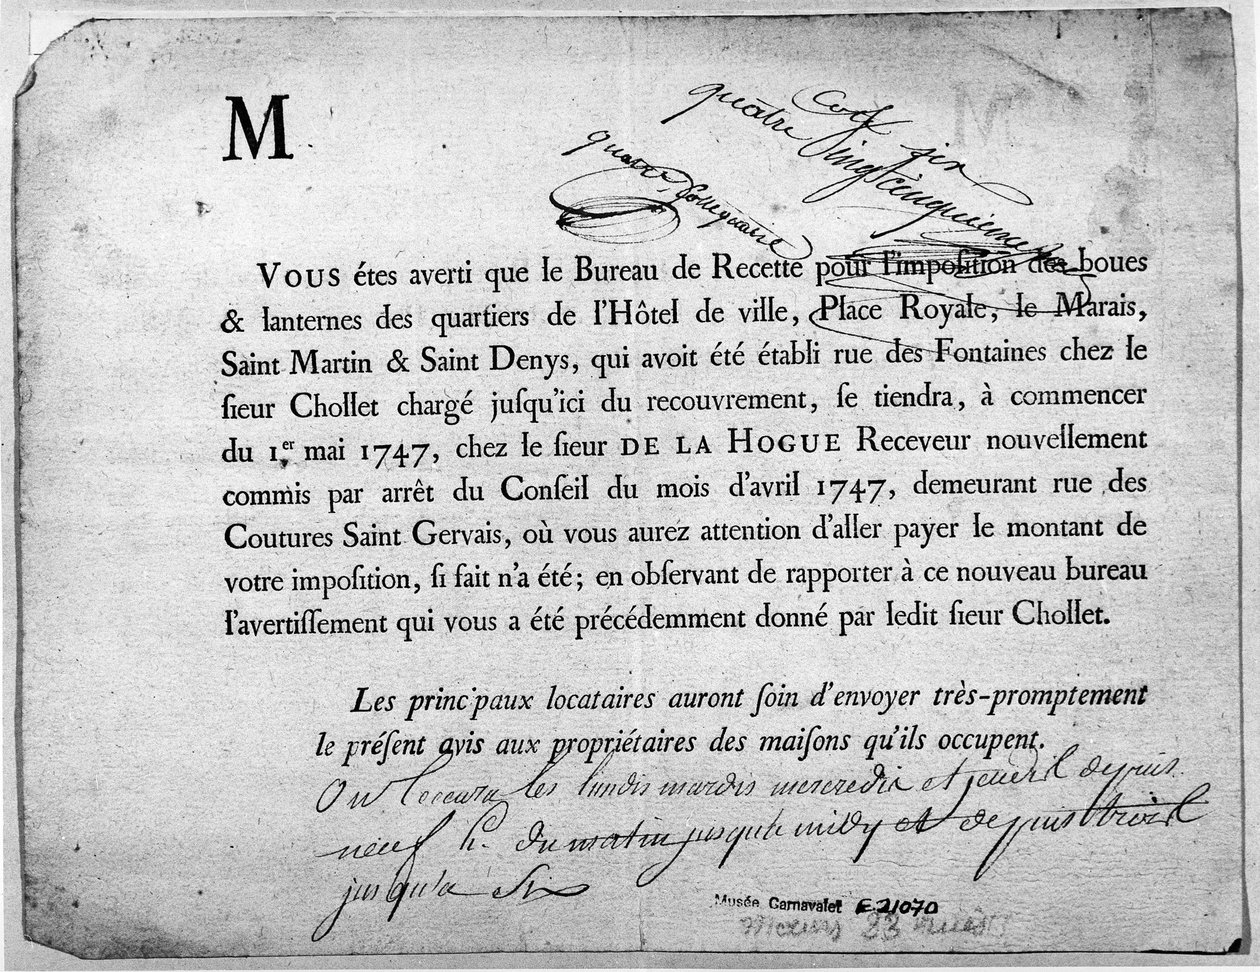 M
quatre
six
Vous étes averti que le Bureau de Recette pour l'impoſition des boues
& lanternes des quartiers de l'Hôtel de ville, Place Royale, le Marais,
Saint Martin & Saint Denys, qui avoit été établi rue des Fontaines chez le
ſieur Chollet chargé juſqu'ici du recouvrement, ſe tiendra, à commencer
du 1.er mai 1747, chez le ſieur DE LA HOGUE Receveur nouvellement
commis par arrêt du Conſeil du mois d'avril 1747, demeurant rue des
Coutures Saint Gervais, où vous aurez attention d'aller payer le montant de
votre impoſition, ſi fait n'a été; en obſervant de rapporter à ce nouveau bureau
l'avertiſſement qui vous a été précédemment donné par ledit ſieur Chollet.
Les principaux locataires auront ſoin d'envoyer très-promptement
le préſent avis aux propriétaires des maiſons qu'ils occupent.
On Recevra les lundis mardis mercredie et jeudi depuis
neuf h. du matin jusqu'a midy et depuis trois
jusqu'a Six
Musée Carnavalet E.21070
Moeurs 33